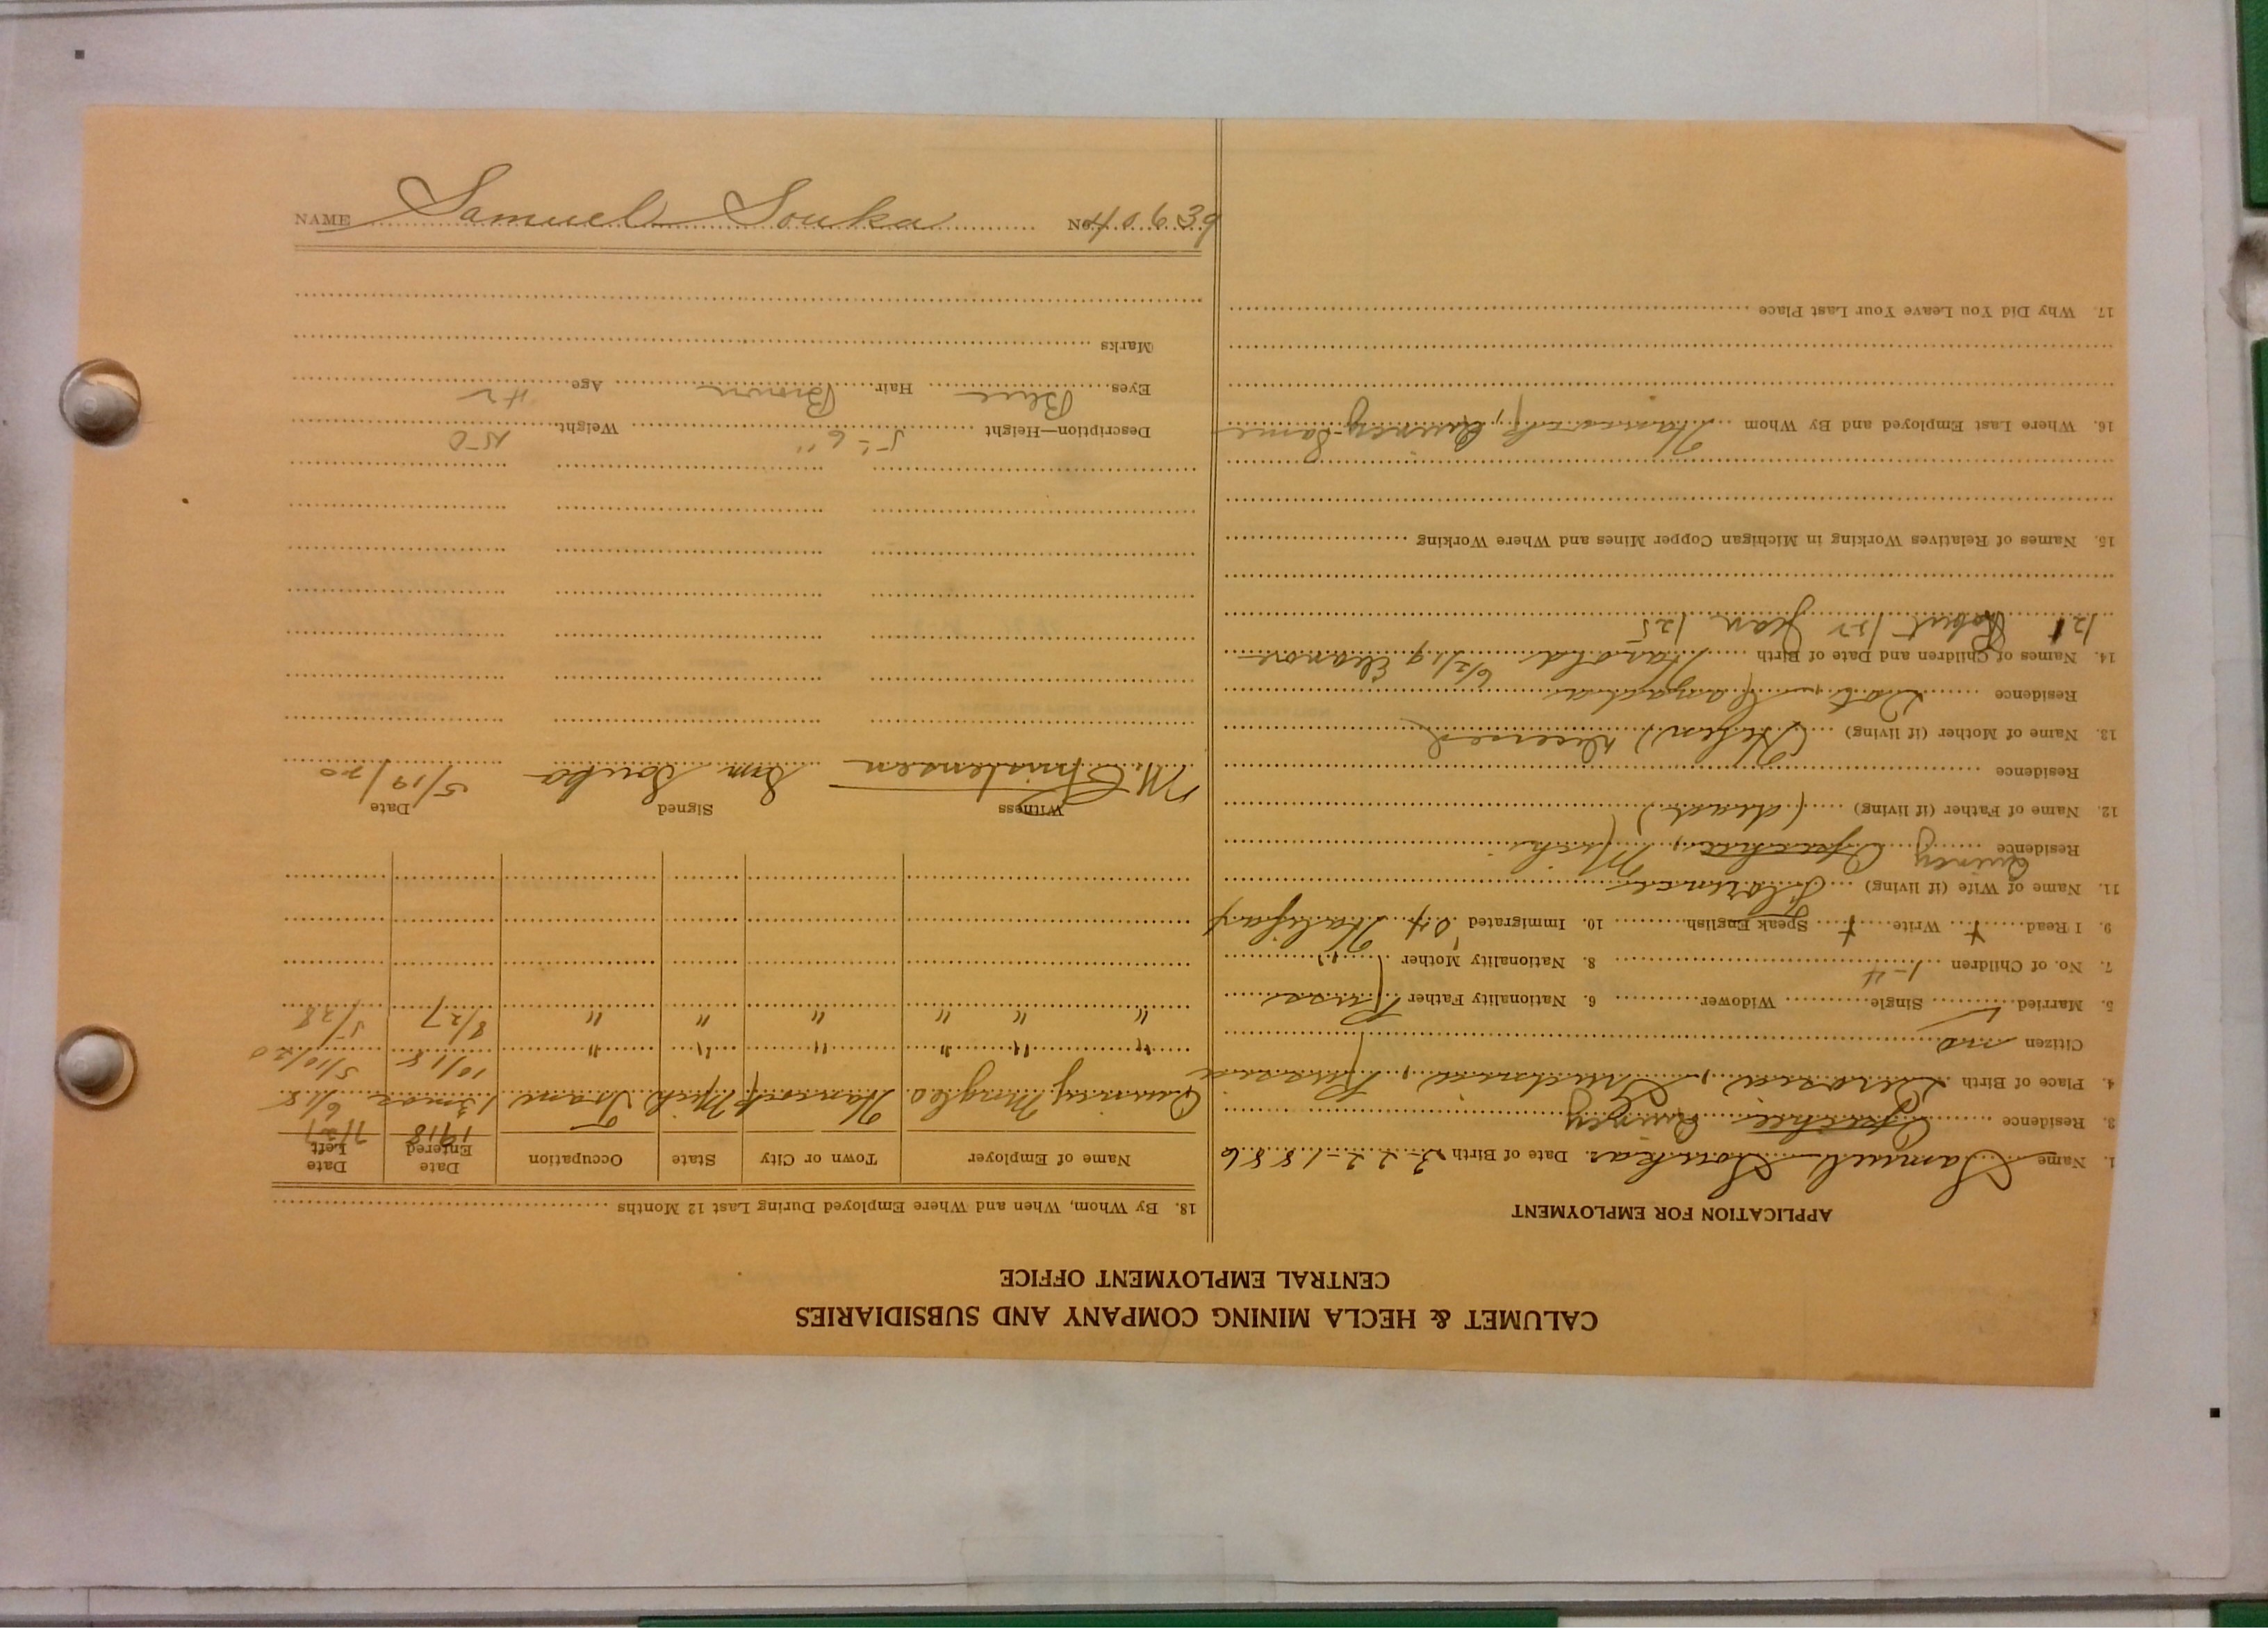 CALUMET & HECLA MINING COMPANY AND SUBSIDIARIES
CENTRAL EMPLOYMENT OFFICE
APPLICATION FOR EMPLOYMENT
1. Name Samuel Soukas Date of Birth 2-22-1886
3. Residence Opechee Quincy
4. Place of Birth Russia
Citizen no
5. Married ✓ Single Widower 6. Nationality Father Russ
7. No. of Children 1-4 8. Nationality Mother "
9. I Read Write Speak English 10. Immigrated '04 Halifax
11. Name of Wife (if living) Florence
Quincy
Residence Opechee, Mich
12. Name of Father (if living) (dead)
Residence
13. Name of Mother (if living) (Helen) deceased
Residence Canada
14. Names of Children and Date of Birth Harold 6/2/19 Eleanore
121 Robert 122 Jean 125
15. Names of Relatives Working in Michigan Copper Mines and Where Working
16. Where Last Employed and By Whom Hancock, Quincy Same
17. Why Did You Leave Your Last Place
18. By Whom, When and Where Employed During Last 12 Months
Name of Employer Town or City State Occupation Date Entered Date Left
1918 7/27
Quincy Mng Co Hancock Mich Tram 13 mos 6/18
" " " " " " 10/18 5/10/20
" " " " " " 8/27 5/28
Witness Signed Date
M. Christensen Sam Souka 5/19/20
Description—Height 5-6" Weight 150
Eyes Blue Hair Brown Age 42
Marks
NAME Samuel Souka No. 40639